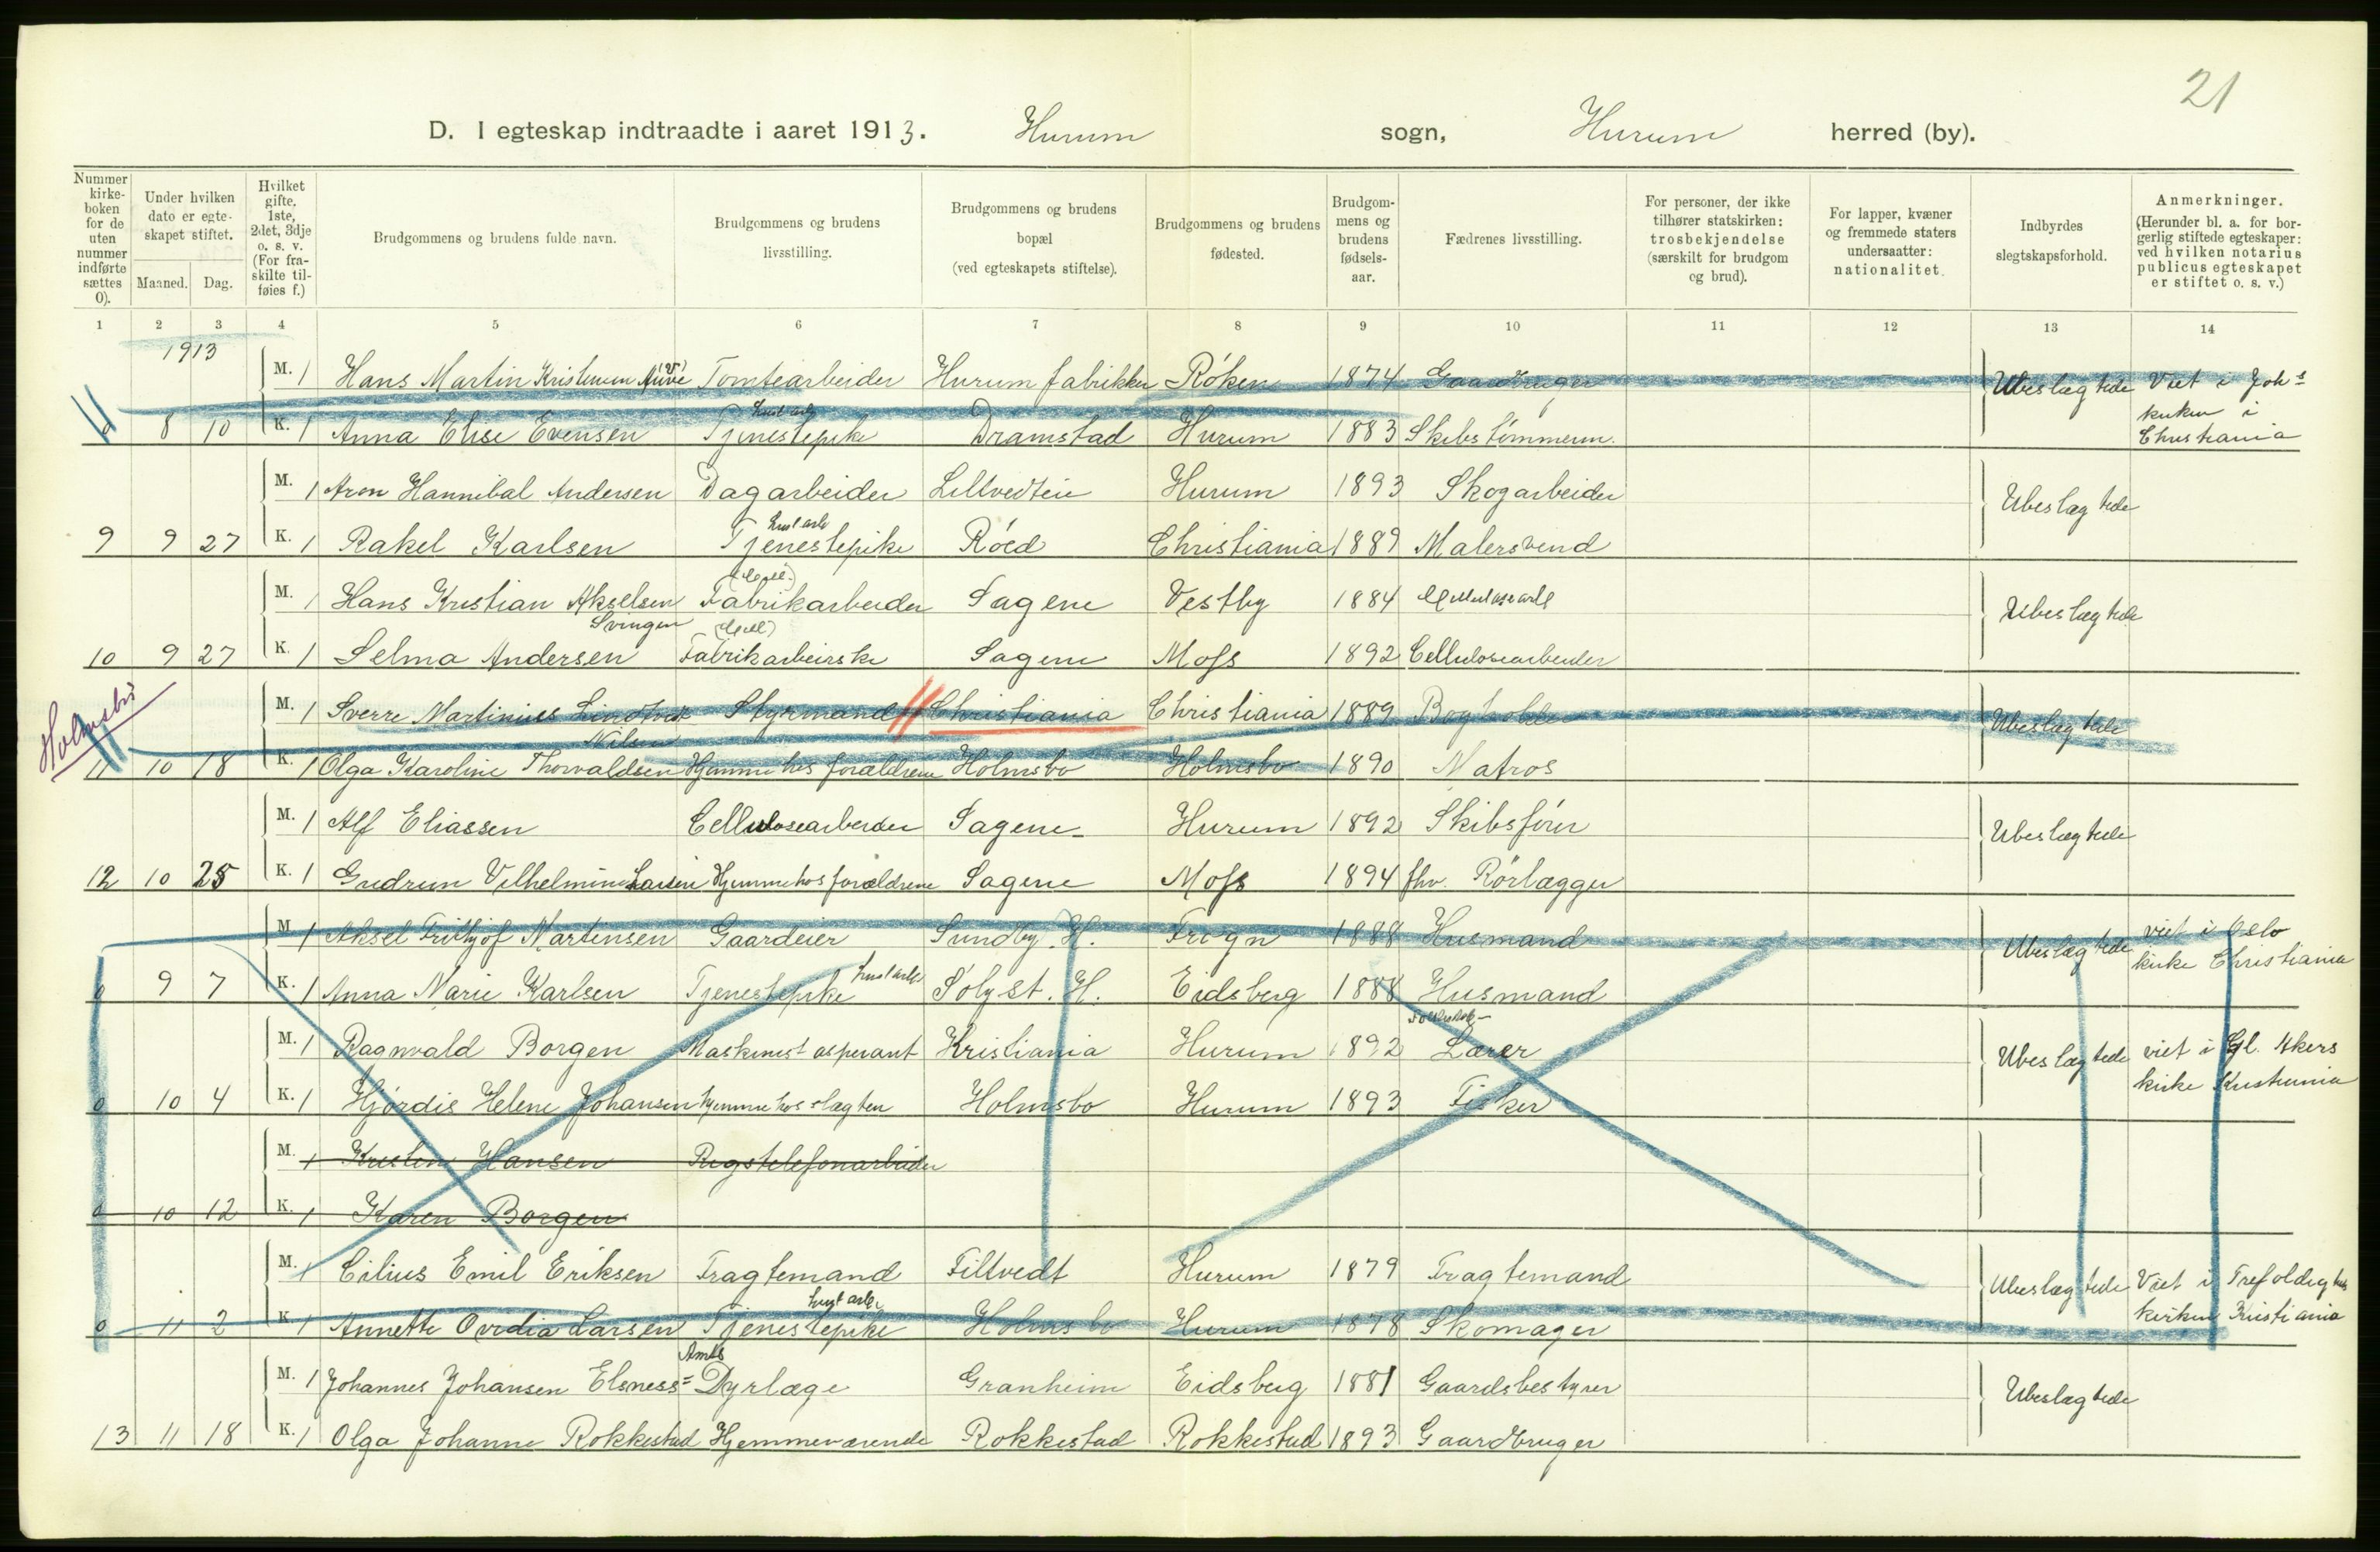 21
D. I egteskap indtraadte i aaret 1913. Hurum sogn, Hurum herred (by).
Nummer kirkeboken for de uten nummer indførte sættes 0).
Under hvilken dato er egteskapet stiftet.
Maaned. Dag.
Hvilket gifte, 1ste, 2det, 3dje o. s. v. (For fraskilte tilføies f.)
Brudgommens og brudens fulde navn.
Brudgommens og brudens livsstilling.
Brudgommens og brudens bopæl (ved egteskapets stiftelse).
Brudgommens og brudens fødested.
Brudgommens og brudens fødselsaar.
Fædrenes livsstilling.
For personer, der ikke tilhører statskirken: trosbekjendelse (særskilt for brudgom og brud).
For lapper, kvæner og fremmede staters undersaatter: nationalitet.
Indbyrdes slegtskapsforhold.
Anmerkninger. (Herunder bl. a. for borgerlig stiftede egteskaper: ved hvilken notarius publicus egteskapet er stiftet o. s. v.)
1 2 3 4 5 6 7 8 9 10 11 12 13 14
1913
M. 1 Hans Martin Kristensen Tomtearbeider Hurum fabrikker Røken 1874 Gaardbruger Ubeslægtede Viet i Johs
kirken i
8 10 K. 1 Anna Elise Evensen Tjenestepike Dramstad Hurum 1883 Skibstømmerm. Christiania
M. 1 Aron Hannibal Andersen Dagarbeider Hurum 1893 Skogarbeider Ubeslægtede
husarb
9 9 27 K. 1 Rakel Karlsen Tjenestepike Røed Christiania 1889 Malersvend
(Cell.)
M. 1 Hans Kristian Akselsen Fabrikarbeider Sagene Vestby 1884 Cellulosearb Ubeslægtede
Svingen (Cell)
10 9 27 K. 1 Selma Andersen Fabrikarbeirske Sagene Moss 1892 Cellulosearbeider
Holmsbo
M. 1 Sverre Martinius Styrmand Christiania Christiania 1889 Bogholder Ubeslægtede
Nilsen
11 10 18 K. 1 Olga Karoline Thorvaldsen Hjemme hos forældrene Holmsbo Holmsbo 1890 Matros
M. 1 Alf Eliassen Cellulosearbeider Sagene Hurum 1892 Skibsfører Ubeslægtede
12 10 25 K. 1 Gudrun Vilhelmine Larsen Hjemme hos forældrene Sagene Moss 1894 fhv. Rørlægger
M. 1 Aksel Frithjof Martinsen Gaardeier Sundby. H. Frogn 1888 Husmand Ubeslægtede viet i Oslo
husarb
0 9 7 K. 1 Anna Marie Karlsen Tjenestepike Solyst. H. Eidsberg 1888 Husmand kirke Christiania
M. 1 Ragnvald Borgen Maskinist aspirant Kristiania Hurum 1892 Lærer Ubeslægtede viet i Gl. Akers
0 10 4 K. 1 Hjørdis Helene Johansen hjemme hos slægten Holmsbo Hurum 1893 Fisker kirke Kristiania
M. 1 Kristen Hansen Rigstelefonarbeider
0 10 12 K. 1 Karen Borgen
M. 1 Cilius Emil Eriksen Fragtemand Filtvedt Hurum 1879 Fragtemand Ubeslægtede Viet i Trefoldigheds
husarb
0 11 2 K. 1 Annette Ovedia Larsen Tjenestepike Holmsbo Hurum 1878 Skomager kirken Kristiania
Amts
M. 1 Johannes Johansen Elsness = Dyrlæge Granheim Eidsberg 1881 Gaardsbestyrer Ubeslægtede
13 11 18 K. 1 Olga Johanne Rokkestad Hjemmeværende Rokkestad Rokkestad 1893 Gaardbruger